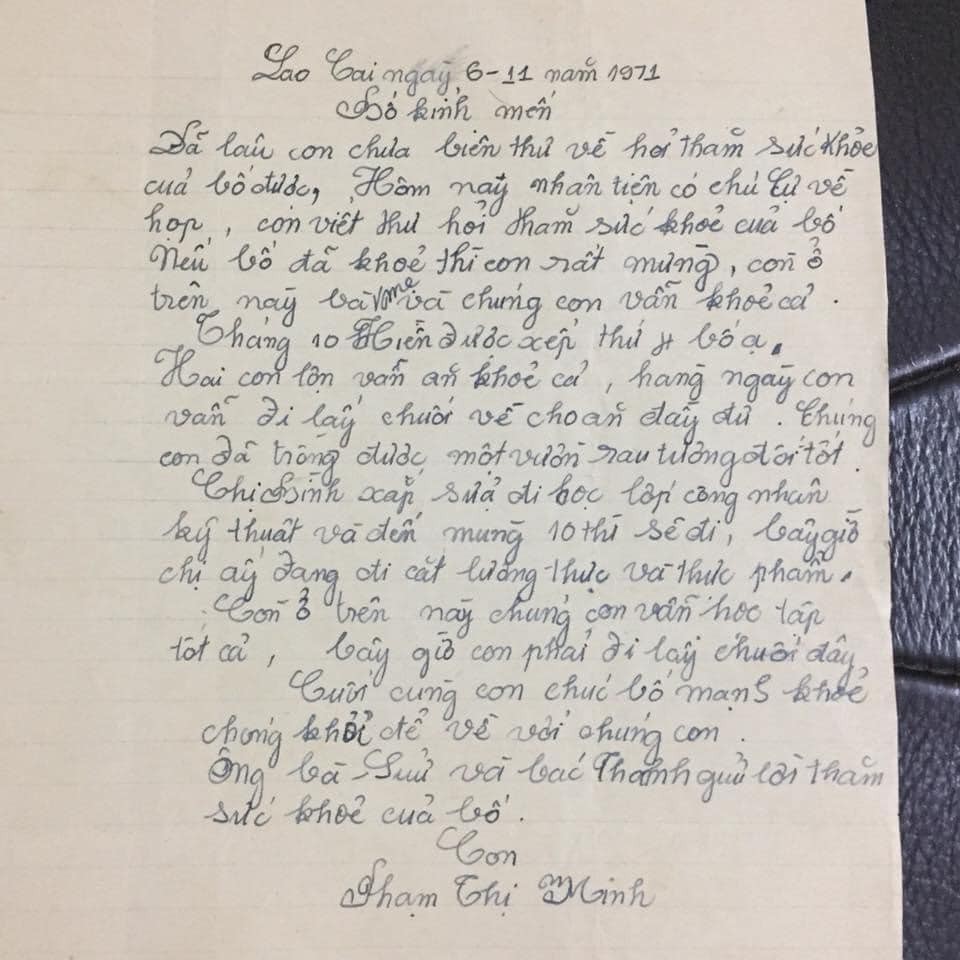 Lao Cai ngày 6-11 năm 1971
Bố kính mến
Đã lâu con chưa biên thư về hỏi thăm sức khỏe
của bố được, Hôm nay nhân tiện có chú Tự về
họp, con viết thư hỏi thăm sức khoẻ của bố
Nếu bố đã khoẻ thì con rất mừng, còn ở
trên này bà mẹ và chúng con vẫn khoẻ cả.
Tháng 10 Hiền được xếp thứ 4 bố ạ.
Hai con lợn vẫn ăn khoẻ cả, hàng ngày con
vẫn đi lấy chuối về cho ăn đầy đủ. Chúng
con đã trồng được một vườn rau tương đối tốt.
Chị Bình xắp sửa đi học lớp công nhân
kỹ thuật và đến mùng 10 thì sẽ đi, bây giờ
chị ấy đang đi cắt lương thực và thực phẩm.
Còn ở trên này chúng con vẫn học tập
tốt cả, bây giờ con phải đi lấy chuối đây
Cuối cùng con chúc bố mạnh khoẻ
chóng khỏi để về với chúng con.
Ông bà Sửu và bác Thành gửi lời thăm
sức khoẻ của bố.
Con
Phạm Thị Minh